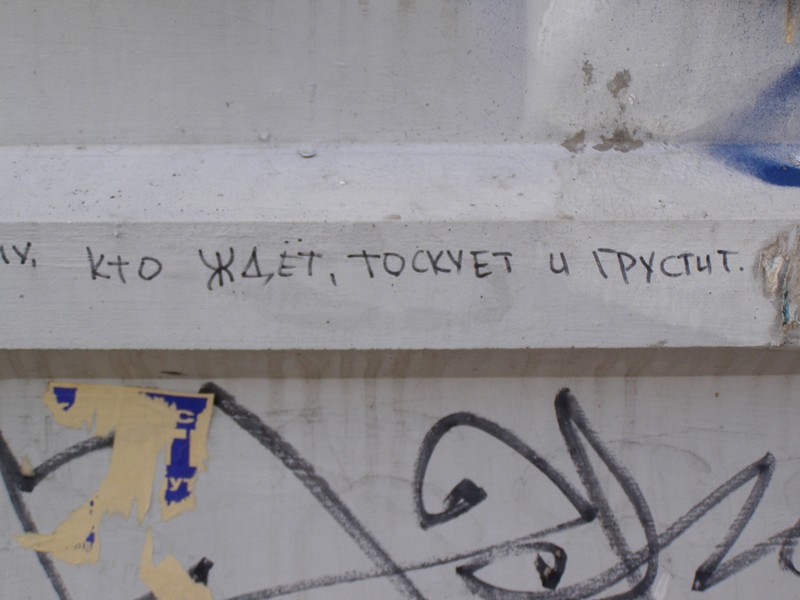 кто ждёт, тоскует и грустит.
С
УТ